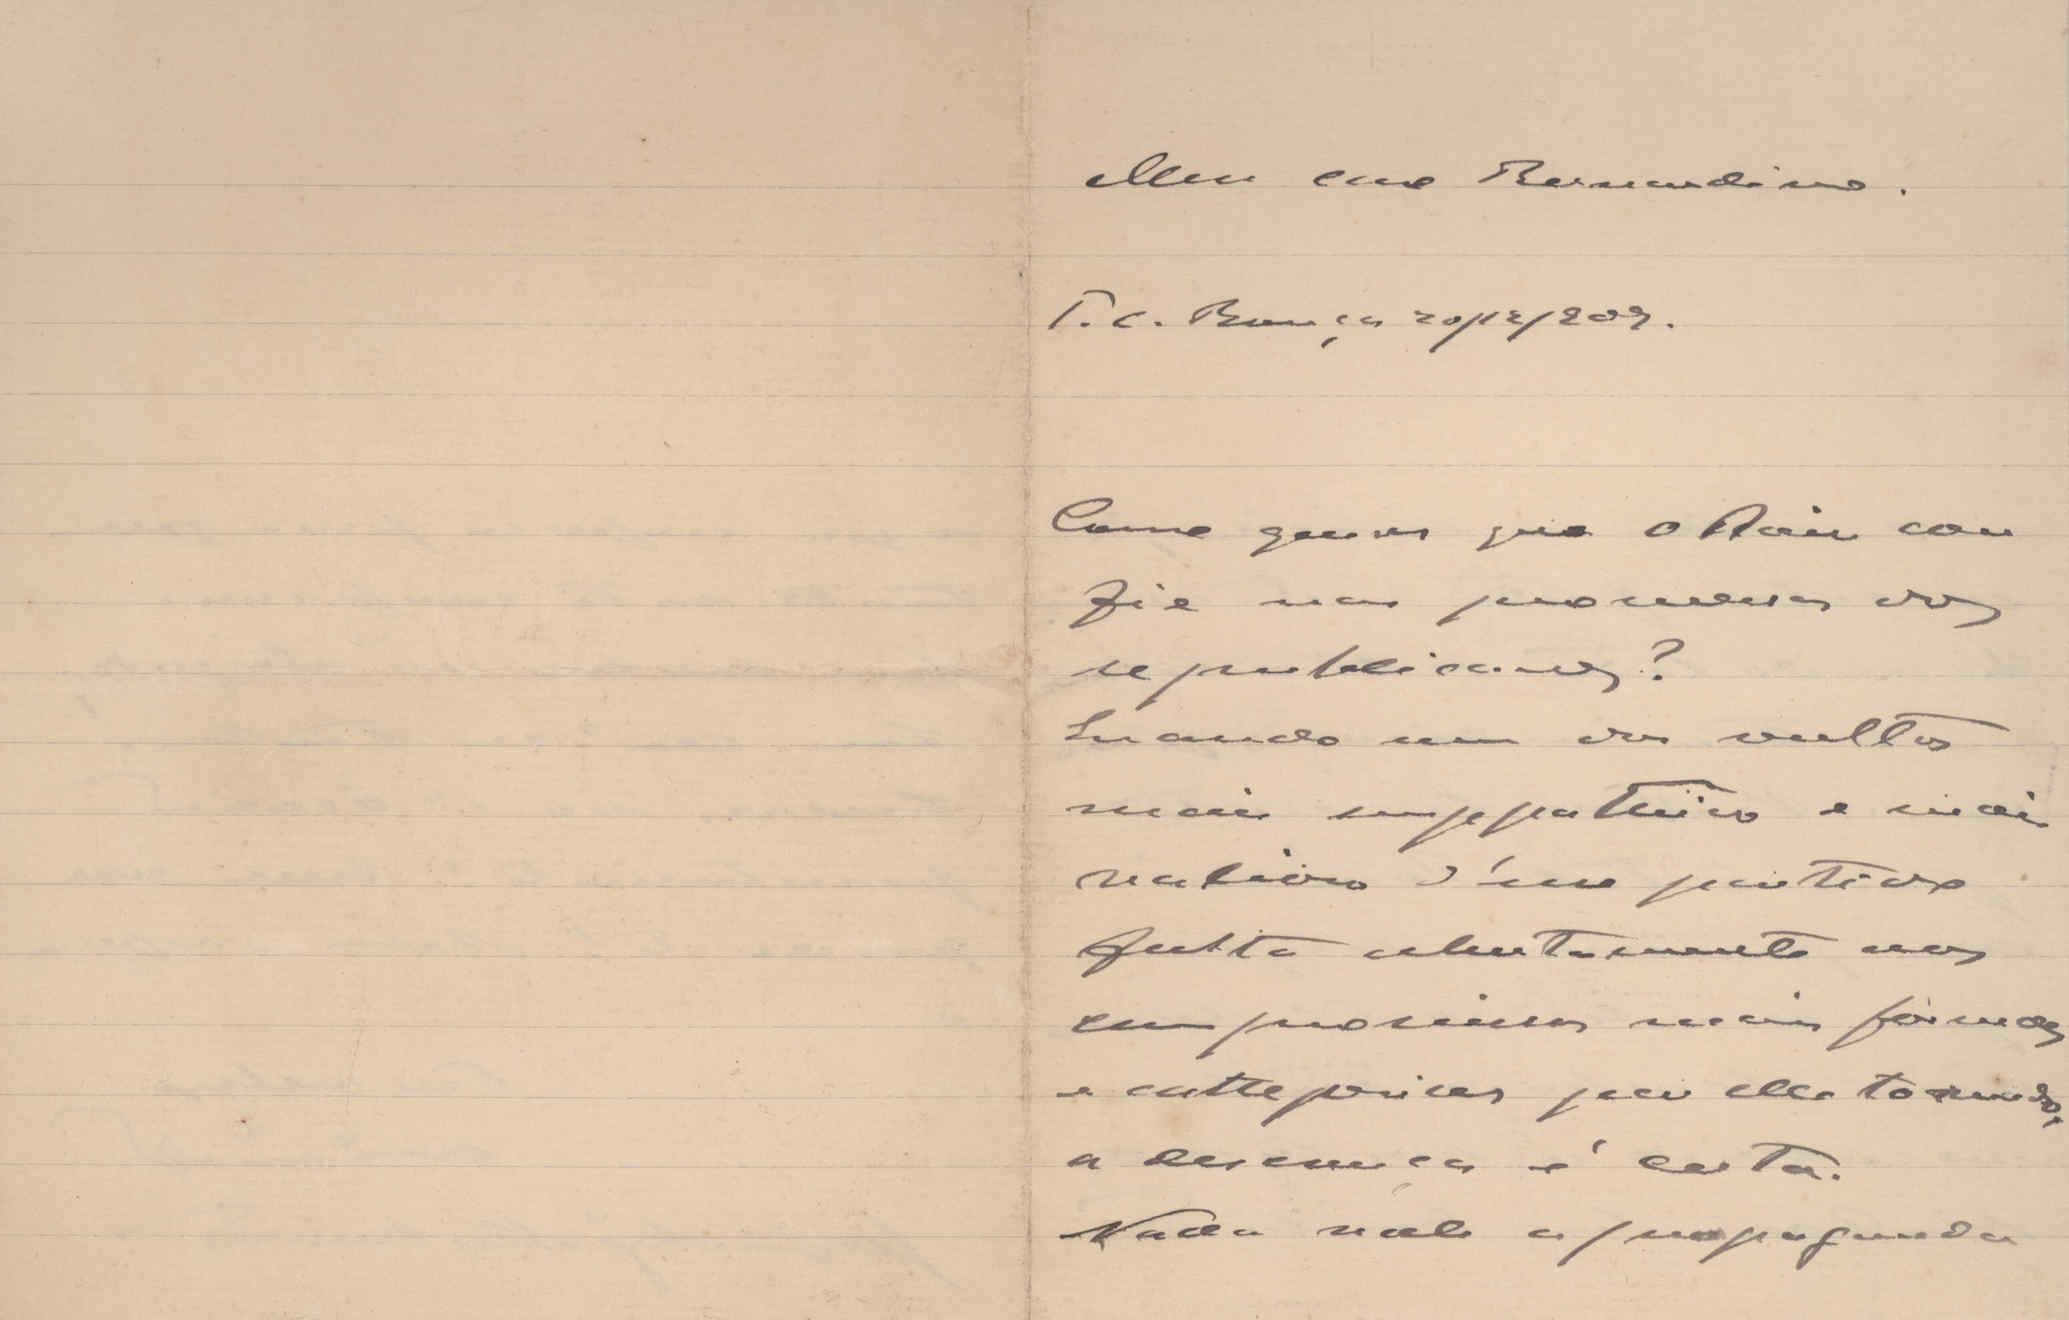 Meu caro Bernardino.
T. C. Bragança 20/12/909.
Como queres que o Paiz con
fie nas promessas dos
republicanos?
Quando um dos vultos
mais sympathico e mais
valioso d'um partido
falta abertamente aos
compromissos mais formaes
e cathegoricos por elle tomados,
a descrença é certa.
Nada vale a propaganda